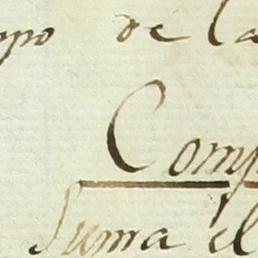 mpo de la
Comp
Suma el